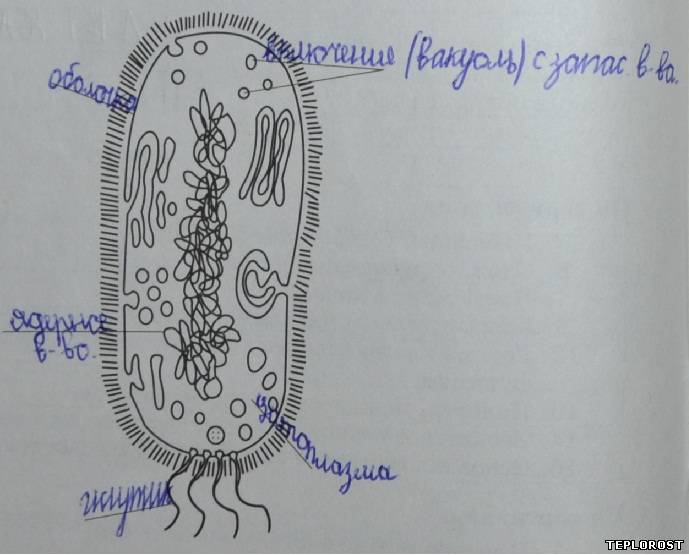 включение (вакуоль) с запас. в-ва.
оболочка
ядерное
в-во.
цитоплазма
жгутик
TEPLOROST